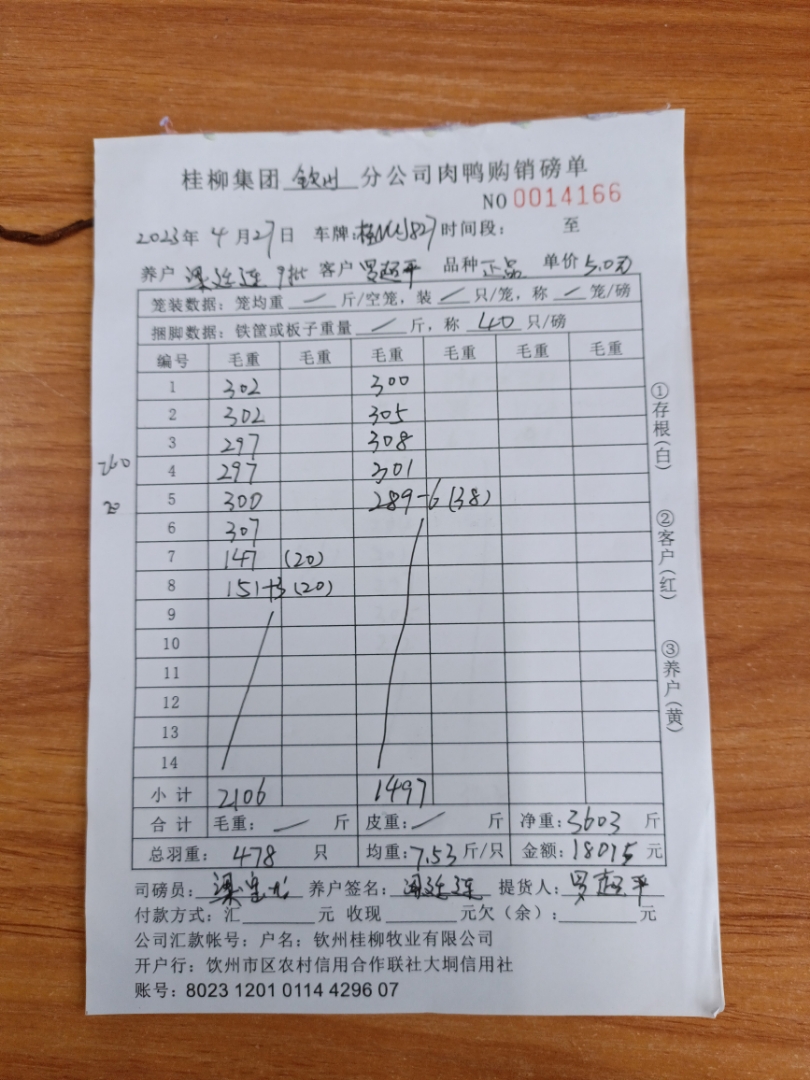 桂柳集团 钦州 分公司肉鸭购销磅单
NO 0014166
2023年 4 月27日 车牌: 时间段: 至
养户 梁连连 9批 客户 罗超平 品种 正品 单价 5.0元
笼装数据: 笼均重 — 斤/空笼, 装 — 只/笼, 称 — 笼/磅
捆脚数据: 铁筐或板子重量 — 斤, 称 40 只/磅
编号 毛重 毛重 毛重 毛重 毛重 毛重
1 302 300
2 302 305
3 297 308
4 297 301
5 300 289-6(38)
6 307
7 147 (20)
8 151+3(20)
9
10
11
12
13
14
小计 2106 1497
合计 毛重: — 斤 皮重: — 斤 净重: 3603 斤
总羽重: 478 只 均重: 7.53 斤/只 金额: 18015 元
司磅员: 养户签名: 提货人: 罗超平
付款方式: 汇 元 收现 元欠(余): 元
公司汇款帐号: 户名: 钦州桂柳牧业有限公司
开户行: 饮州市区农村信用合作联社大垌信用社
账号: 8023 1201 0114 4296 07
①存根(白)
②客户(红)
③养户(黄)
260
20